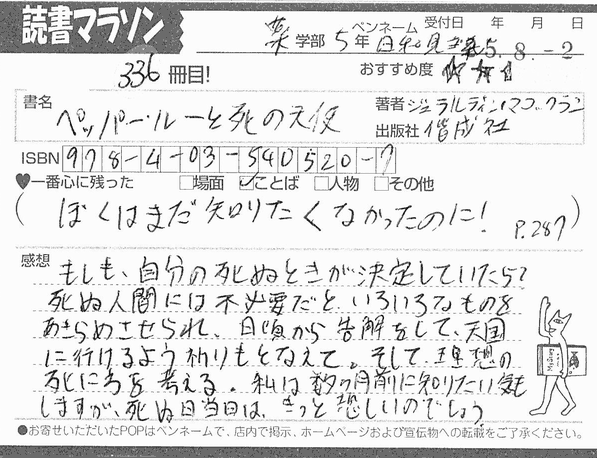 読書マラソン
薬学部 5年 ペンネーム 受付日 年 月 日
5.8.-2
336冊目!
おすすめ度
書名 ペッパー・ルーと死の天使
著者 ジェラルディン・マコックラン
出版社 偕成社
ISBN 978-4-03-540520-7
♥一番心に残った □場面 ☑ことば □人物 □その他
(ぼくはまだ知りたくなかったのに! P.287)
感想
もしも、自分の死ぬときが決定していたら?
死ぬ人間には不必要だと、いろいろなものを
あきらめさせられ、日頃から告解をして、天国
に行けるよう祈りもとなえて。そして、理想の
死にろを考える。私は数ヶ月前に知りたい気も
しますが、死ぬ日当日は、きっと恐しいのでしょう
●お寄せいただいたPOPはペンネームで、店内で掲示、ホームページおよび宣伝物への転載をご了承ください。